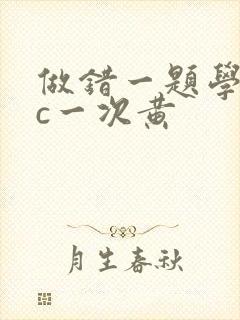 做錯一題學
c一次黄
月生春秋